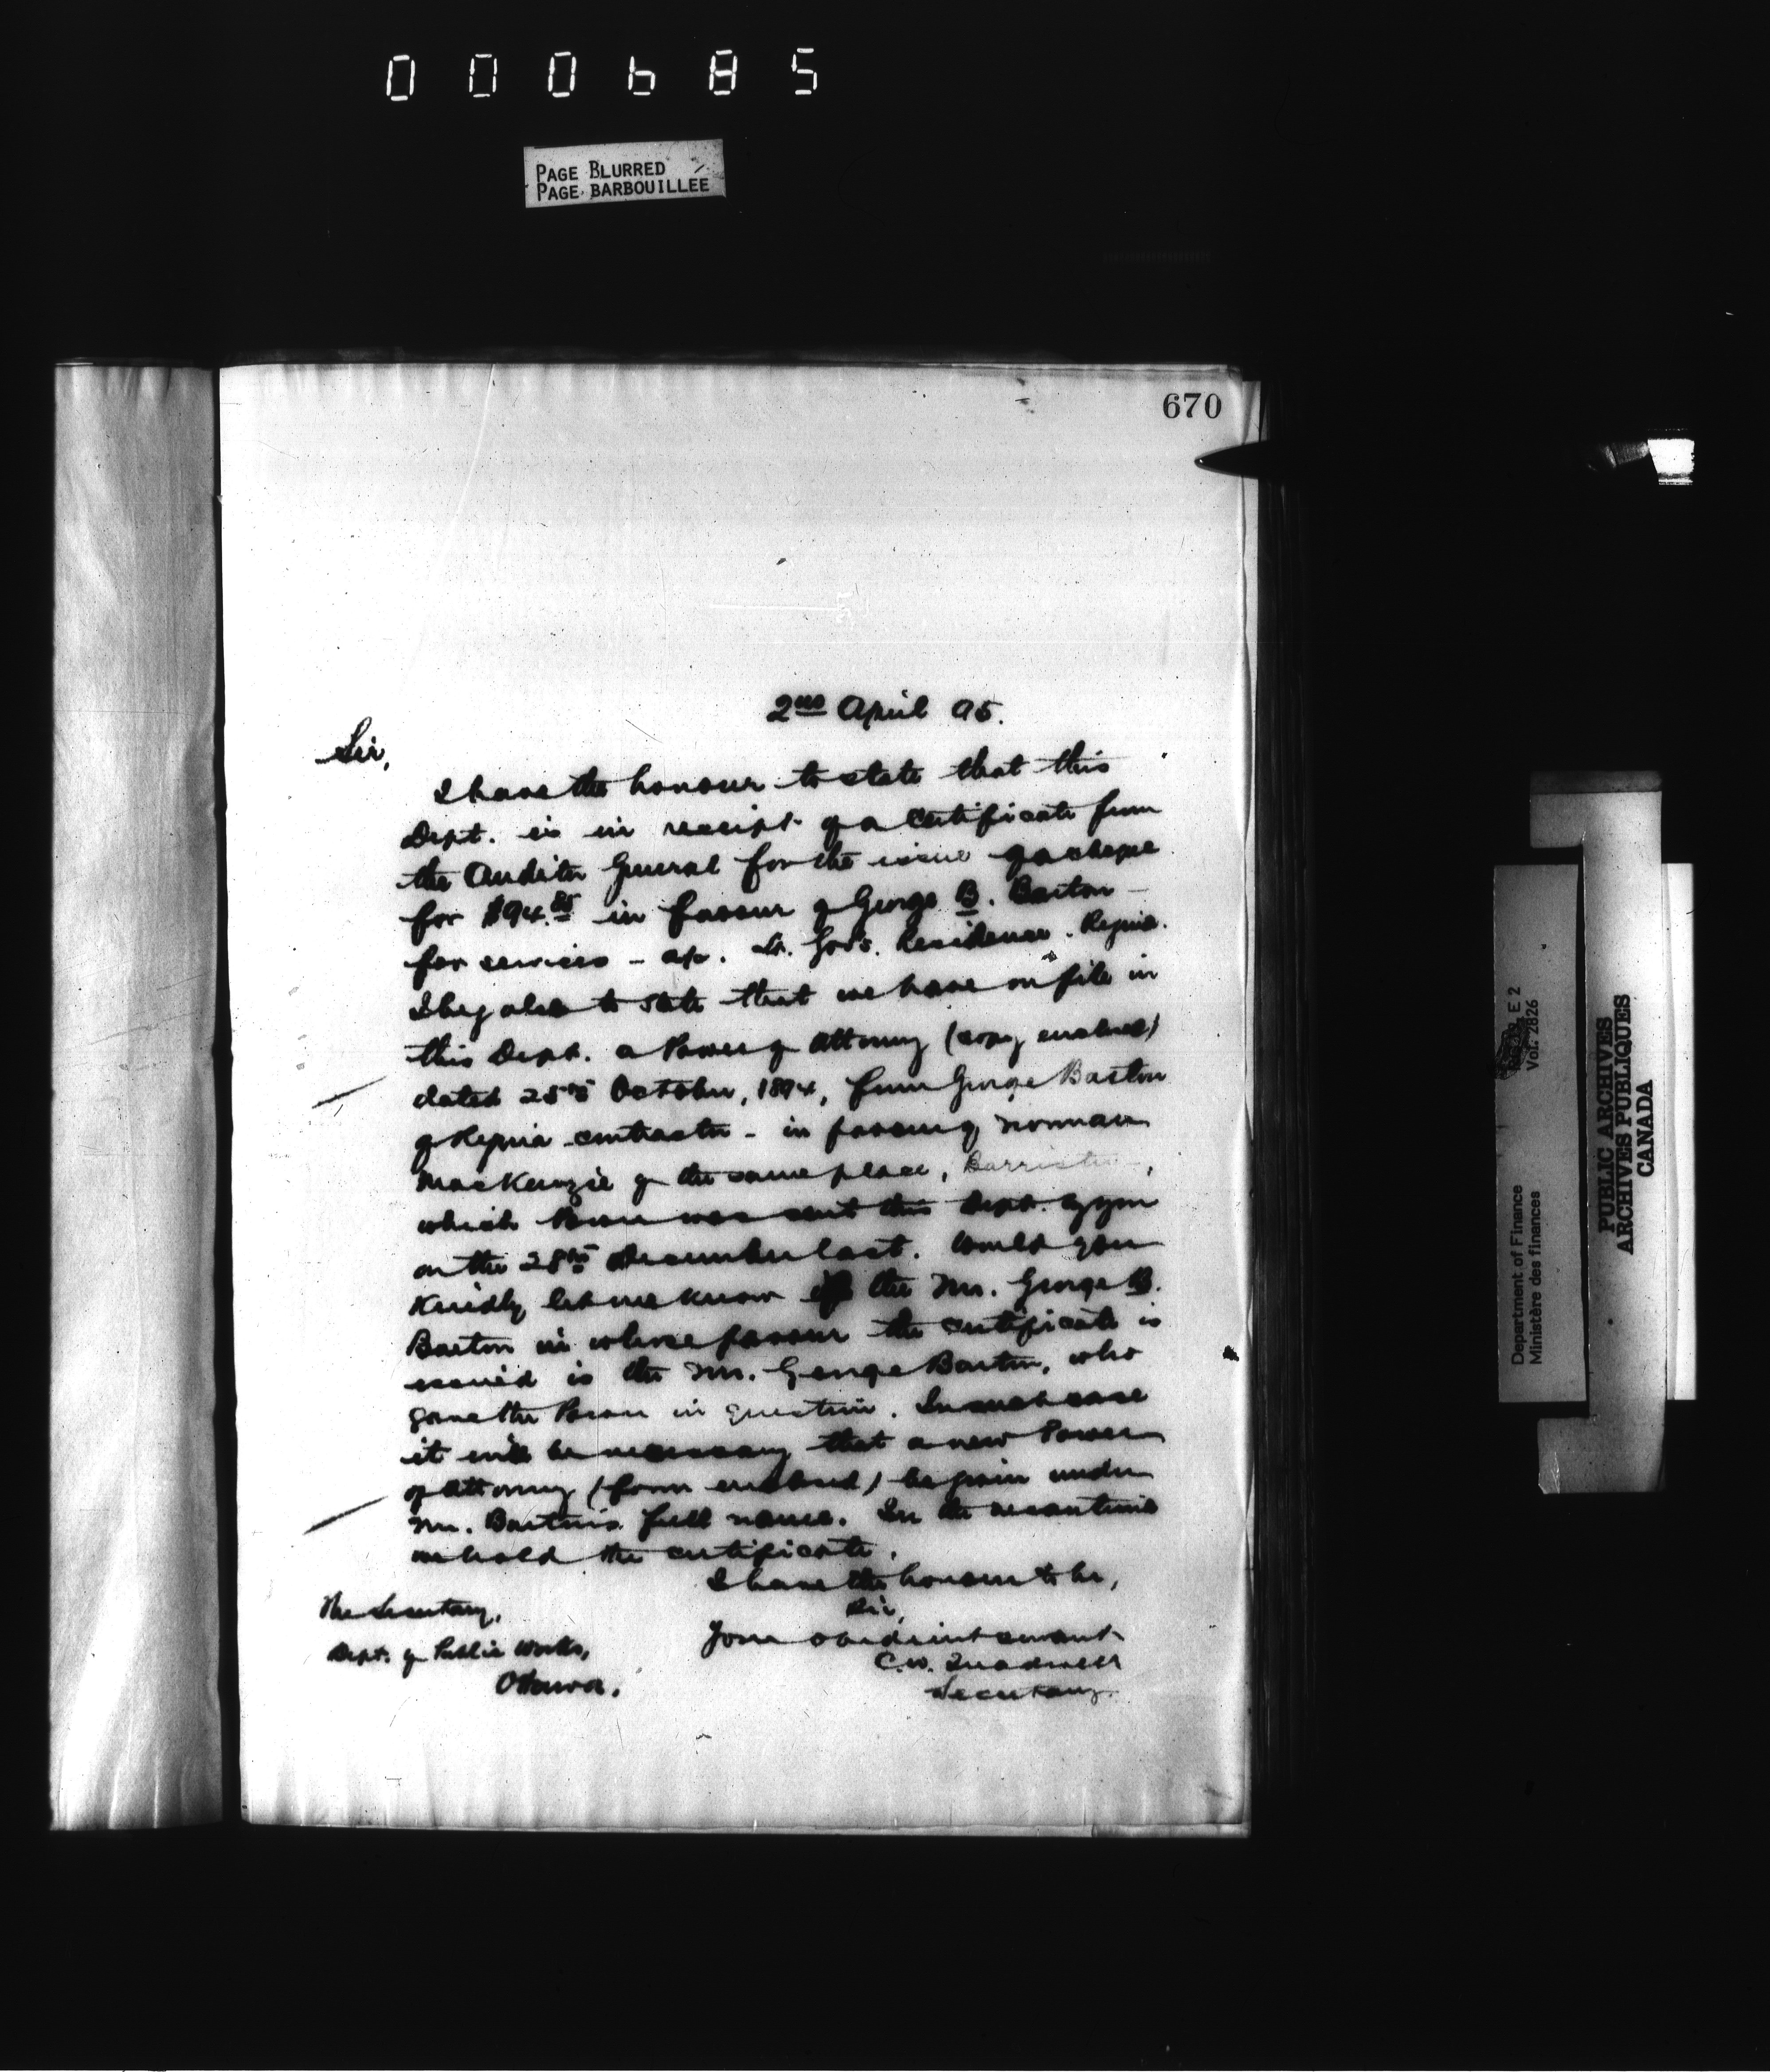 000685
PAGE BLURRED
PAGE BARBOUILLEE
670
2nd April 95.
Sir,
I have the honour to state that this
Dept. is in receipt of a Certificate from
the Auditor General for the issue of a cheque
for $94.85 in favour of George B. Barton –
for services – a/c. Lt. Gov's. Residence. Regina.
I beg also to state that we have on file in
this Dept. a Power of Attorney (copy enclosed)
dated 25th October, 1894, from George Barton
of Regina contractor – in favour of Norman
MacKenzie of the same place, Barrister,
which Power was sent this Dept. by you
on the 28th December last. Would you
Kindly let me know if the Mr. George B.
Barton in whose favour the certificate is
issued is the Mr. George Barton, who
gave the Power in question. In such case
it will be necessary that a new Power
of Attorney (form enclosed) be given under
Mr. Barton's full name. In the meantime
we hold the certificate.
I have the honour to be,
Sir,
Your obedient servant
C.W. Treadwell
Secretary.
The Secretary,
Dept. of Public Works,
Ottawa.
E 2
Vol. 2826
Department of Finance
Ministère des finances
PUBLIC ARCHIVES
ARCHIVES PUBLIQUES
CANADA